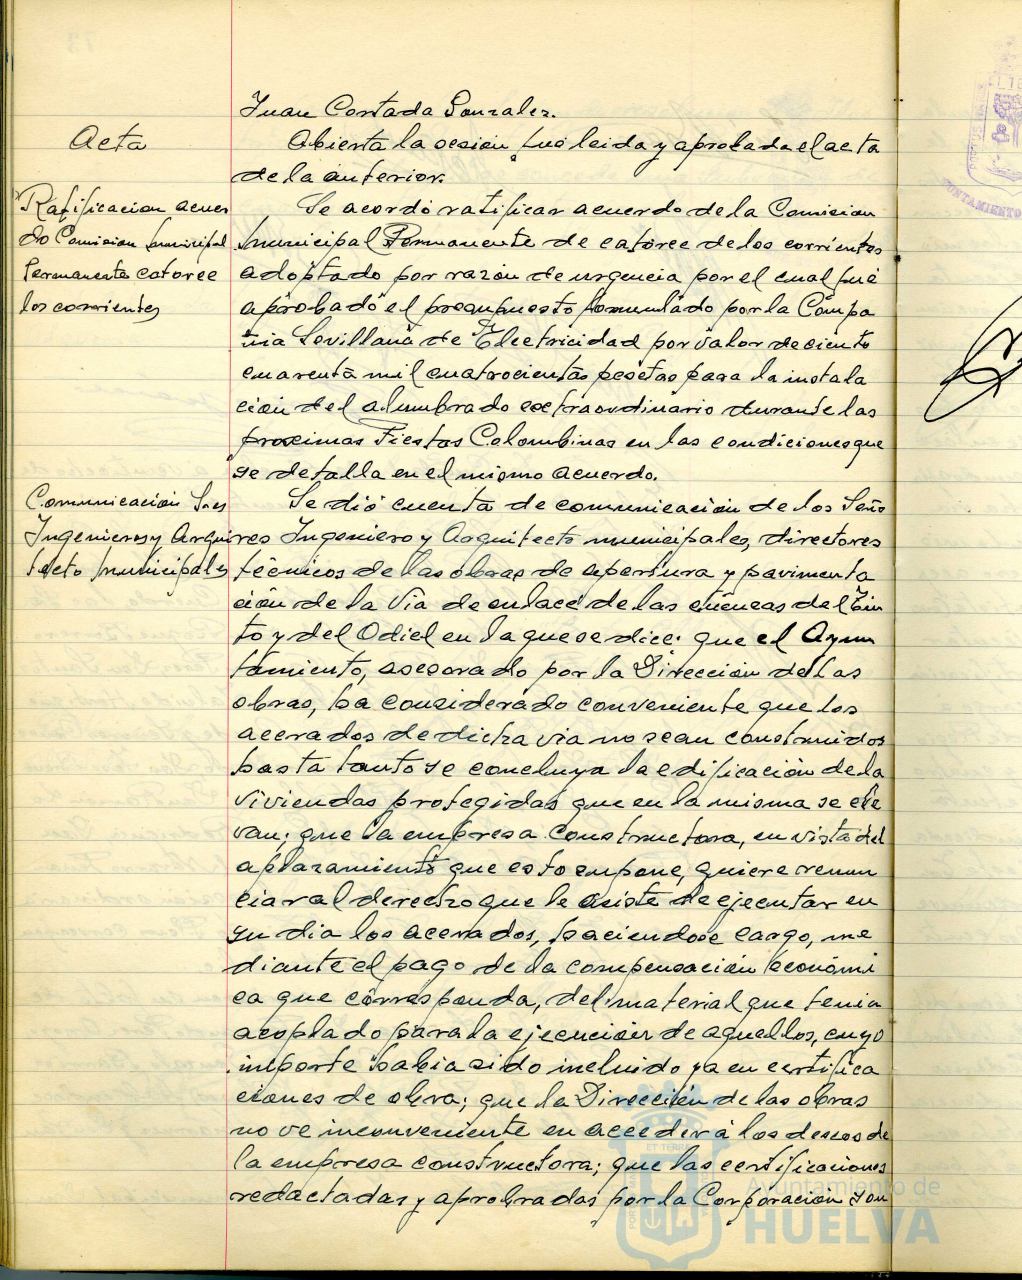 Juan Contada Gonzalez.
Acta
Abierta la sesión fué leida y aprobada el acta
de la anterior.
Ratificacion acuer
do Comision municipal
Permanente catorce
los corrientes
Se acordó ratificar acuerdo de la Comision
municipal Permanente de catorce de los corrientes
adoptado por razón de urgencia por el cual fué
aprobado el presupuesto formulado por la Compa
ñia Sevillana de Electricidad por valor de ciento
cuarenta mil cuatrocientas pesetas para la instala
ción del alumbrado extraordinario durante las
proximas Fiestas Colombinas en las condiciones que
se detalla en el mismo acuerdo.
Comunicación Sres
Ingenieros y Arqui
tecto municipales
Se dió cuenta de comunicación de los Seño
res Ingeniero y Arquitecto municipales, directores
técnicos de las obras de apertura y pavimenta
ción de la Via de enlace de las cuencas del Tin
to y del Odiel en la que se dice: que el Ayun
tamiento, asesorado por la Dirección de las
obras, ha considerado conveniente que los
acerados de dicha via no sean construidos
hasta tanto se concluya la edificación de la
viviendas protegidas que en la misma se ele
van; que la empresa constructora, en vista del
aplazamiento que esto supone, quiere renun
ciar al derecho que le asiste de ejecutar en
su dia los acerados, haciendose cargo, me
diante el pago de la compensación económi
ca que corresponda, del material que tenia
acoplado para la ejecución de aquellos, cuyo
importe habia sido incluido ya en certifica
ciones de obra; que la Dirección de las obras
no ve inconveniente en acceder á los deseos de
la empresa constructora; que las certificaciones
redactadas y aprobadas por la Corporación son
Ayuntamiento de
HUELVA